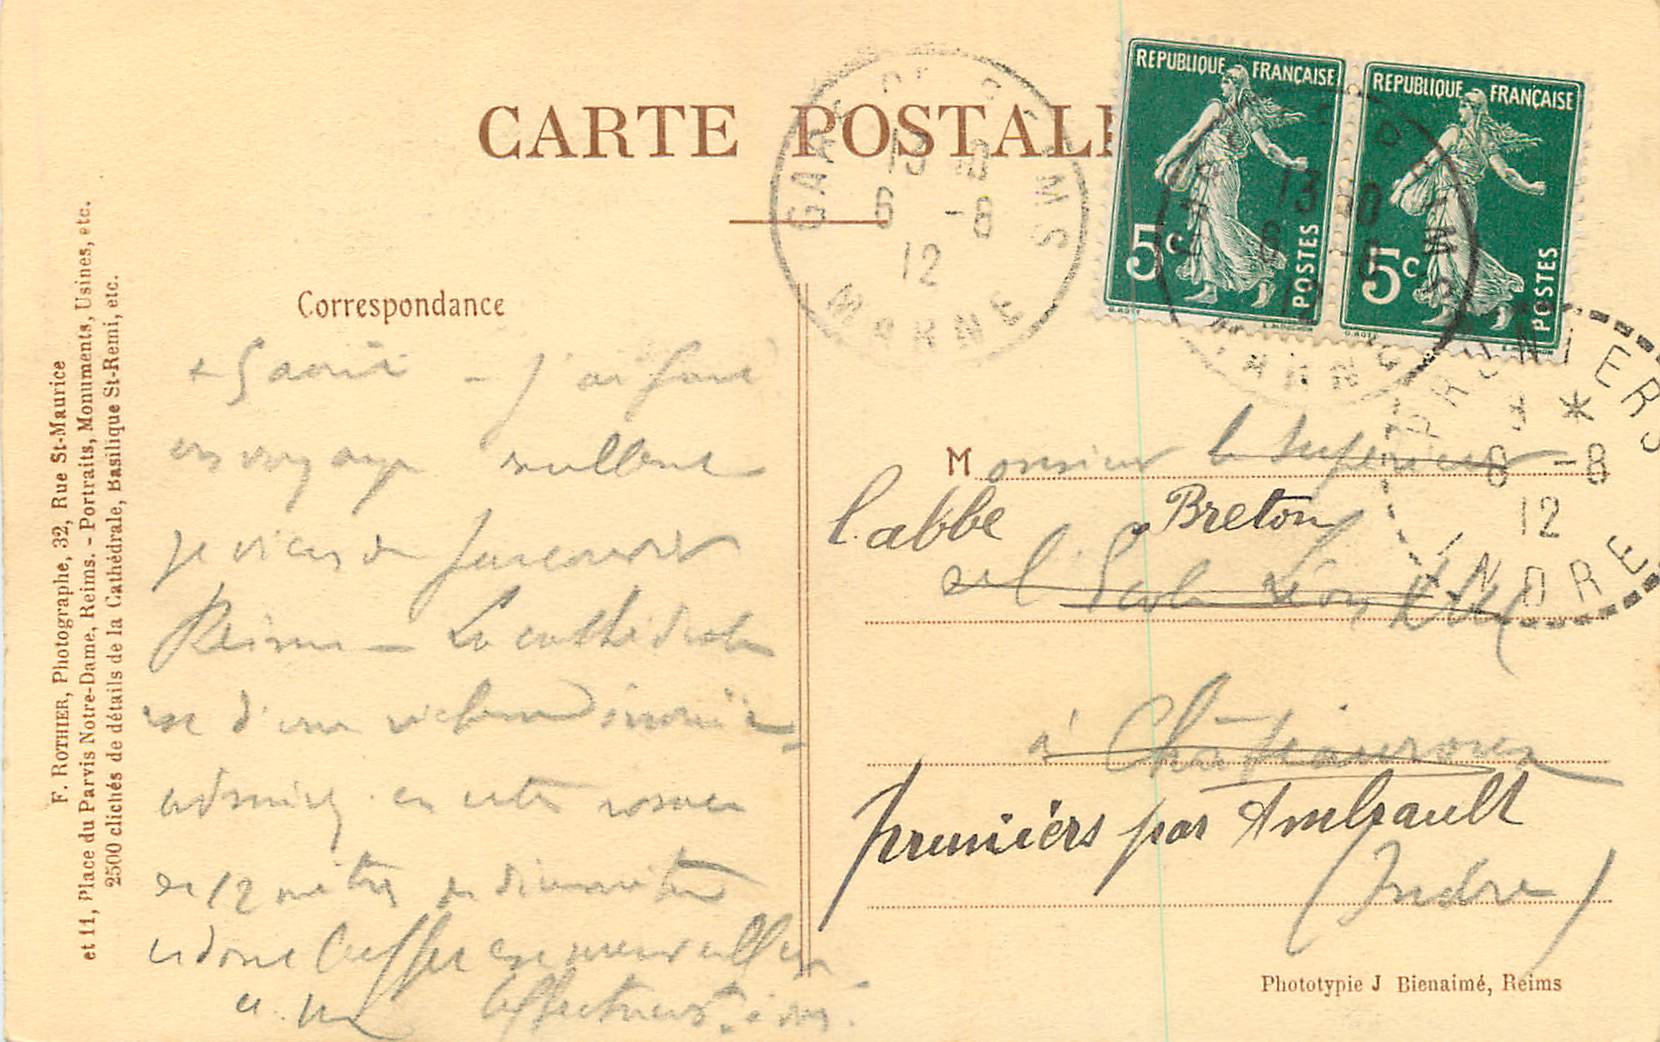 CARTE POSTALE
REPUBLIQUE FRANÇAISE
5c POSTES
REPUBLIQUE FRANÇAISE
5c POSTES
GARE DE REIMS
13 10
6 -8
12
MARNE
13 10
6 -8
12
MARNE
PRUNIERS
*
8 -8
12
INDRE
F. ROTHIER, Photographe, 32, Rue St-Maurice
et 11, Place du Parvis Notre-Dame, Reims. - Portraits, Monuments, Usines, etc.
2500 clichés de détails de la Cathédrale, Basilique St-Remi, etc.
Correspondance
J'ai fait
un voyage excellent
je viens de parcourir
Reims - La cathédrale
est d'une richesse
admirez en cette rosace
de 12 mètres de diamètre
et dont l'effet est merveilleux
Monsieur le Supérieur
l'abbé Breton
de l'Ecole Léon XIII
à Châteauroux
pruniérs par Ambrault
(Indre)
Phototypie J Bienaimé, Reims